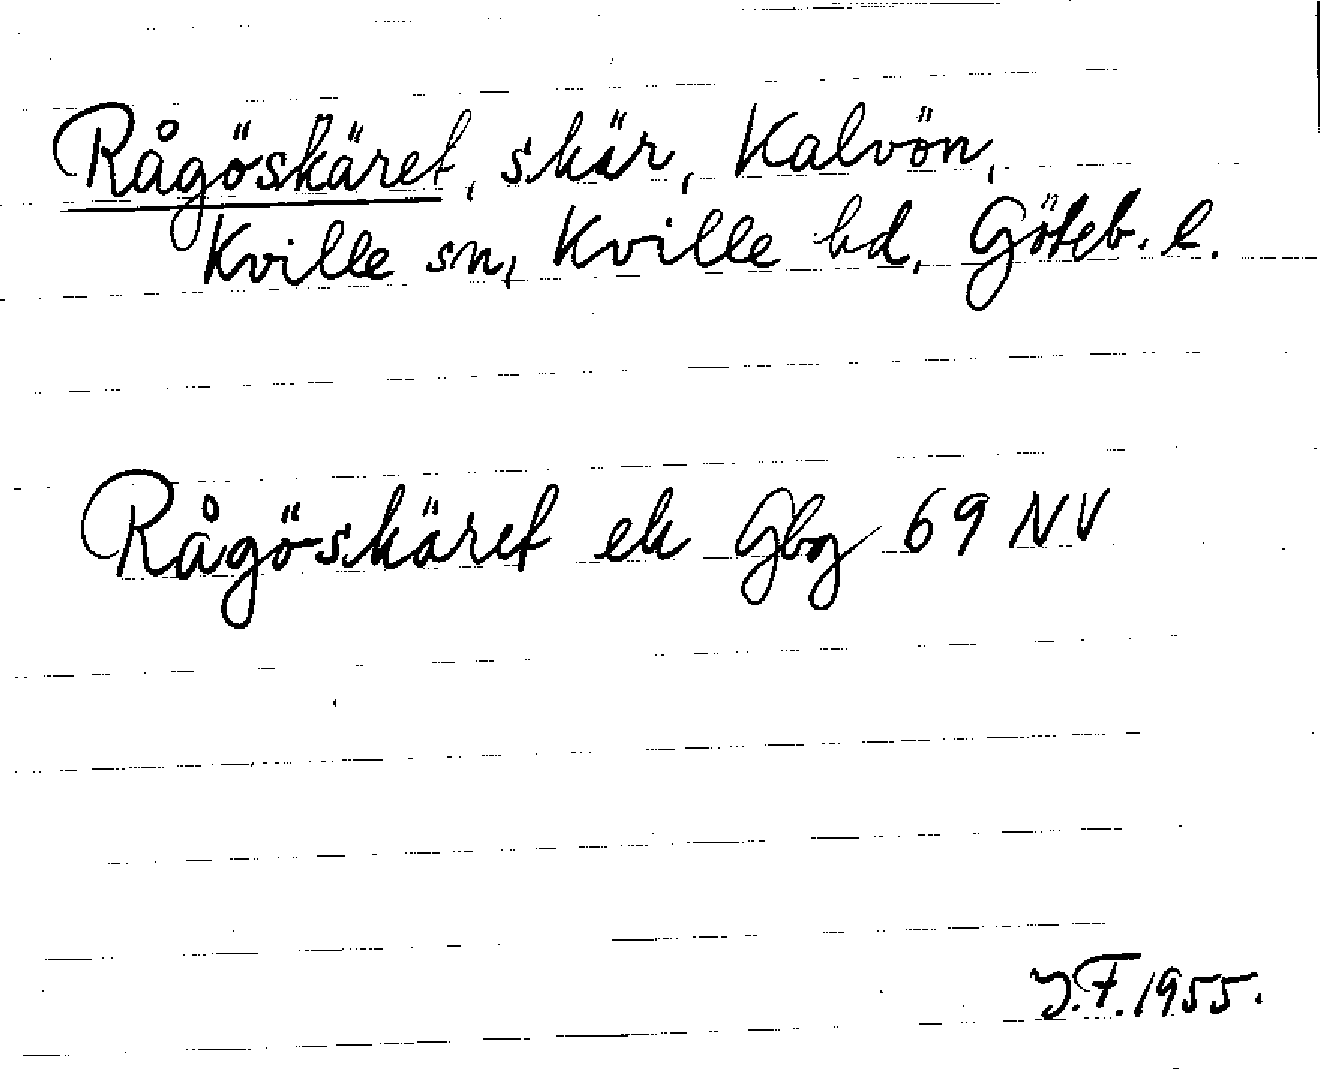 Rågöskäret, skär, Kalvön,
Kville sn, Kville hd, Göteb. l.
Rågöskäret ek Gbg 69 NV
J.F. 1955.